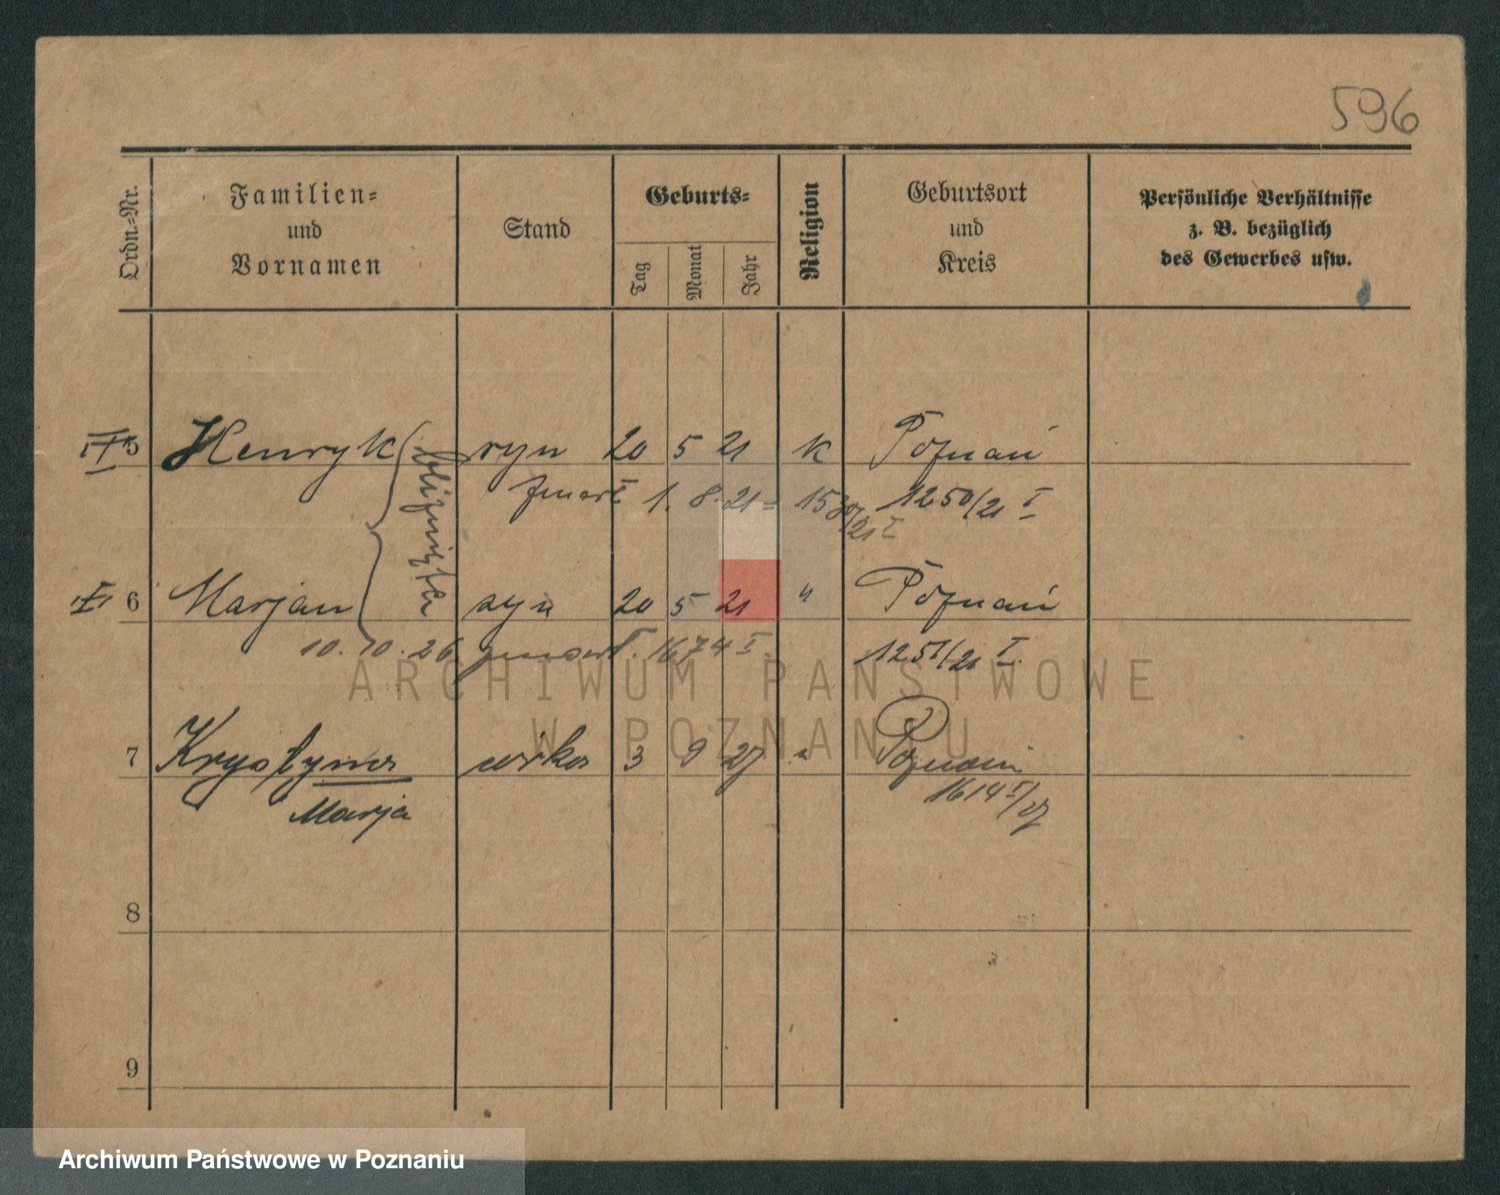 596
Ordn.-Nr.
Familien-
und
Vornamen
Stand
Geburts-
Tag
Monat
Jahr
Religion
Geburtsort
und
Kreis
Persönliche Verhältnisse
z. B. bezüglich
des Gewerbes usw.
5 Henryk syn 20 5 21 k Poznań
bliźnięta
zmarł 1. 8. 21 = 1530/21 I 1250/21 I
6 Marjan syn 20 5 21 " Poznań
10.10.26 zmarł. 1674 I. 1251/21 I.
ARCHIWUM PAŃSTWOWE
W POZNANIU
7 Krystyna córka 3 9 27 " Poznań
Marja 1614 I/27
8
9
Archiwum Państwowe w Poznaniu